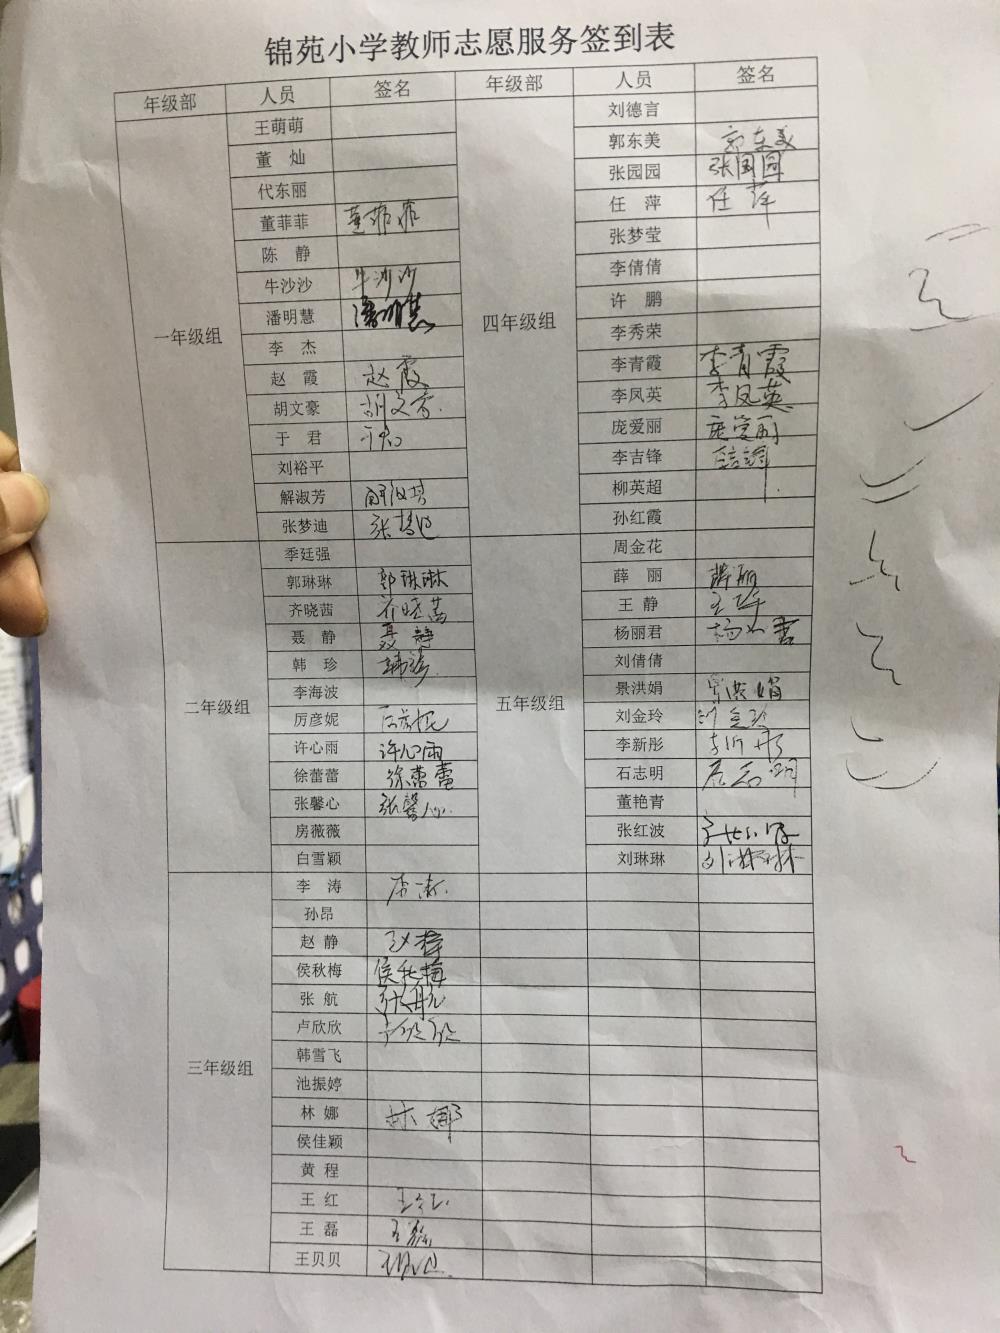 锦苑小学教师志愿服务签到表
年级部 人员 签名 年级部 人员 签名
一年级组
王萌萌
董 灿
代东丽
董菲菲 董菲菲
陈 静
牛沙沙 牛沙沙
潘明慧 潘明慧
李 杰
赵 霞 赵霞
胡文豪 胡文豪
于 君 于君
刘裕平
解淑芳 解淑芳
张梦迪 张梦迪
二年级组
季廷强
郭琳琳 郭琳琳
齐晓茜 齐晓茜
聂 静 聂静
韩 珍 韩珍
李海波
厉彦妮 厉彦妮
许心雨 许心雨
徐蕾蕾 徐蕾蕾
张馨心 张馨心
房薇薇
白雪颖
三年级组
李 涛
孙昂
赵 静 赵静
侯秋梅 侯秋梅
张 航 张航
卢欣欣 卢欣欣
韩雪飞
池振婷
林 娜 林娜
侯佳颖
黄 程
王 红 王红
王 磊 王磊
王贝贝
四年级组
刘德言
郭东美 郭东美
张园园 张园园
任 萍 任萍
张梦莹
李倩倩
许 鹏
李秀荣
李青霞 李青霞
李凤英 李凤英
庞爱丽 庞爱丽
李吉锋
柳英超
孙红霞
五年级组
周金花
薛 丽 薛丽
王 静 王静
杨丽君 杨丽君
刘倩倩
景洪娟 景洪娟
刘金玲 刘金玲
李新彤 李新彤
石志明 石志明
董艳青
张红波
刘琳琳 刘琳琳